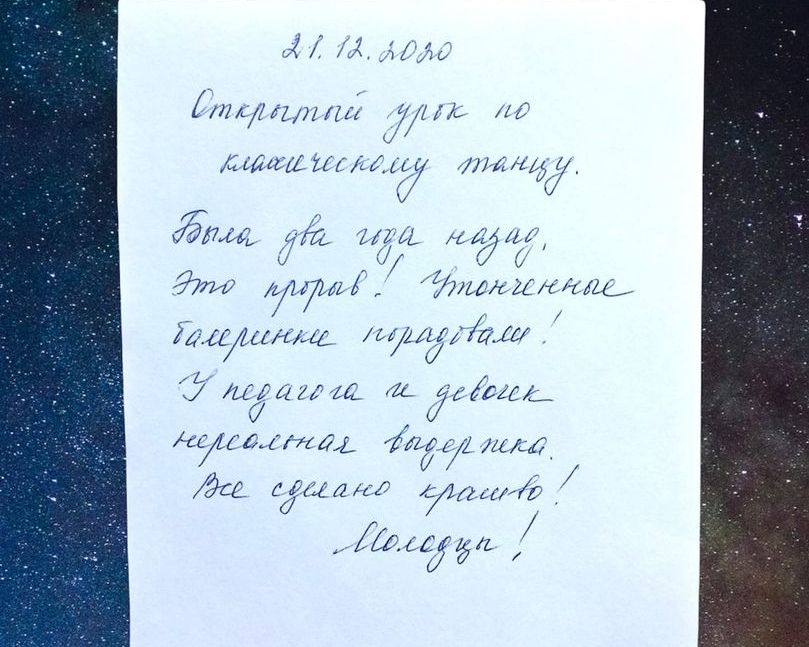 21.12.2020
Открытый урок по
классическому танцу.
Была два года назад,
Это прорыв! Утонченные
балеринки порадовали!
У педагога и девочек
нереальная выдержка.
Все сделано красиво!
Молодцы!